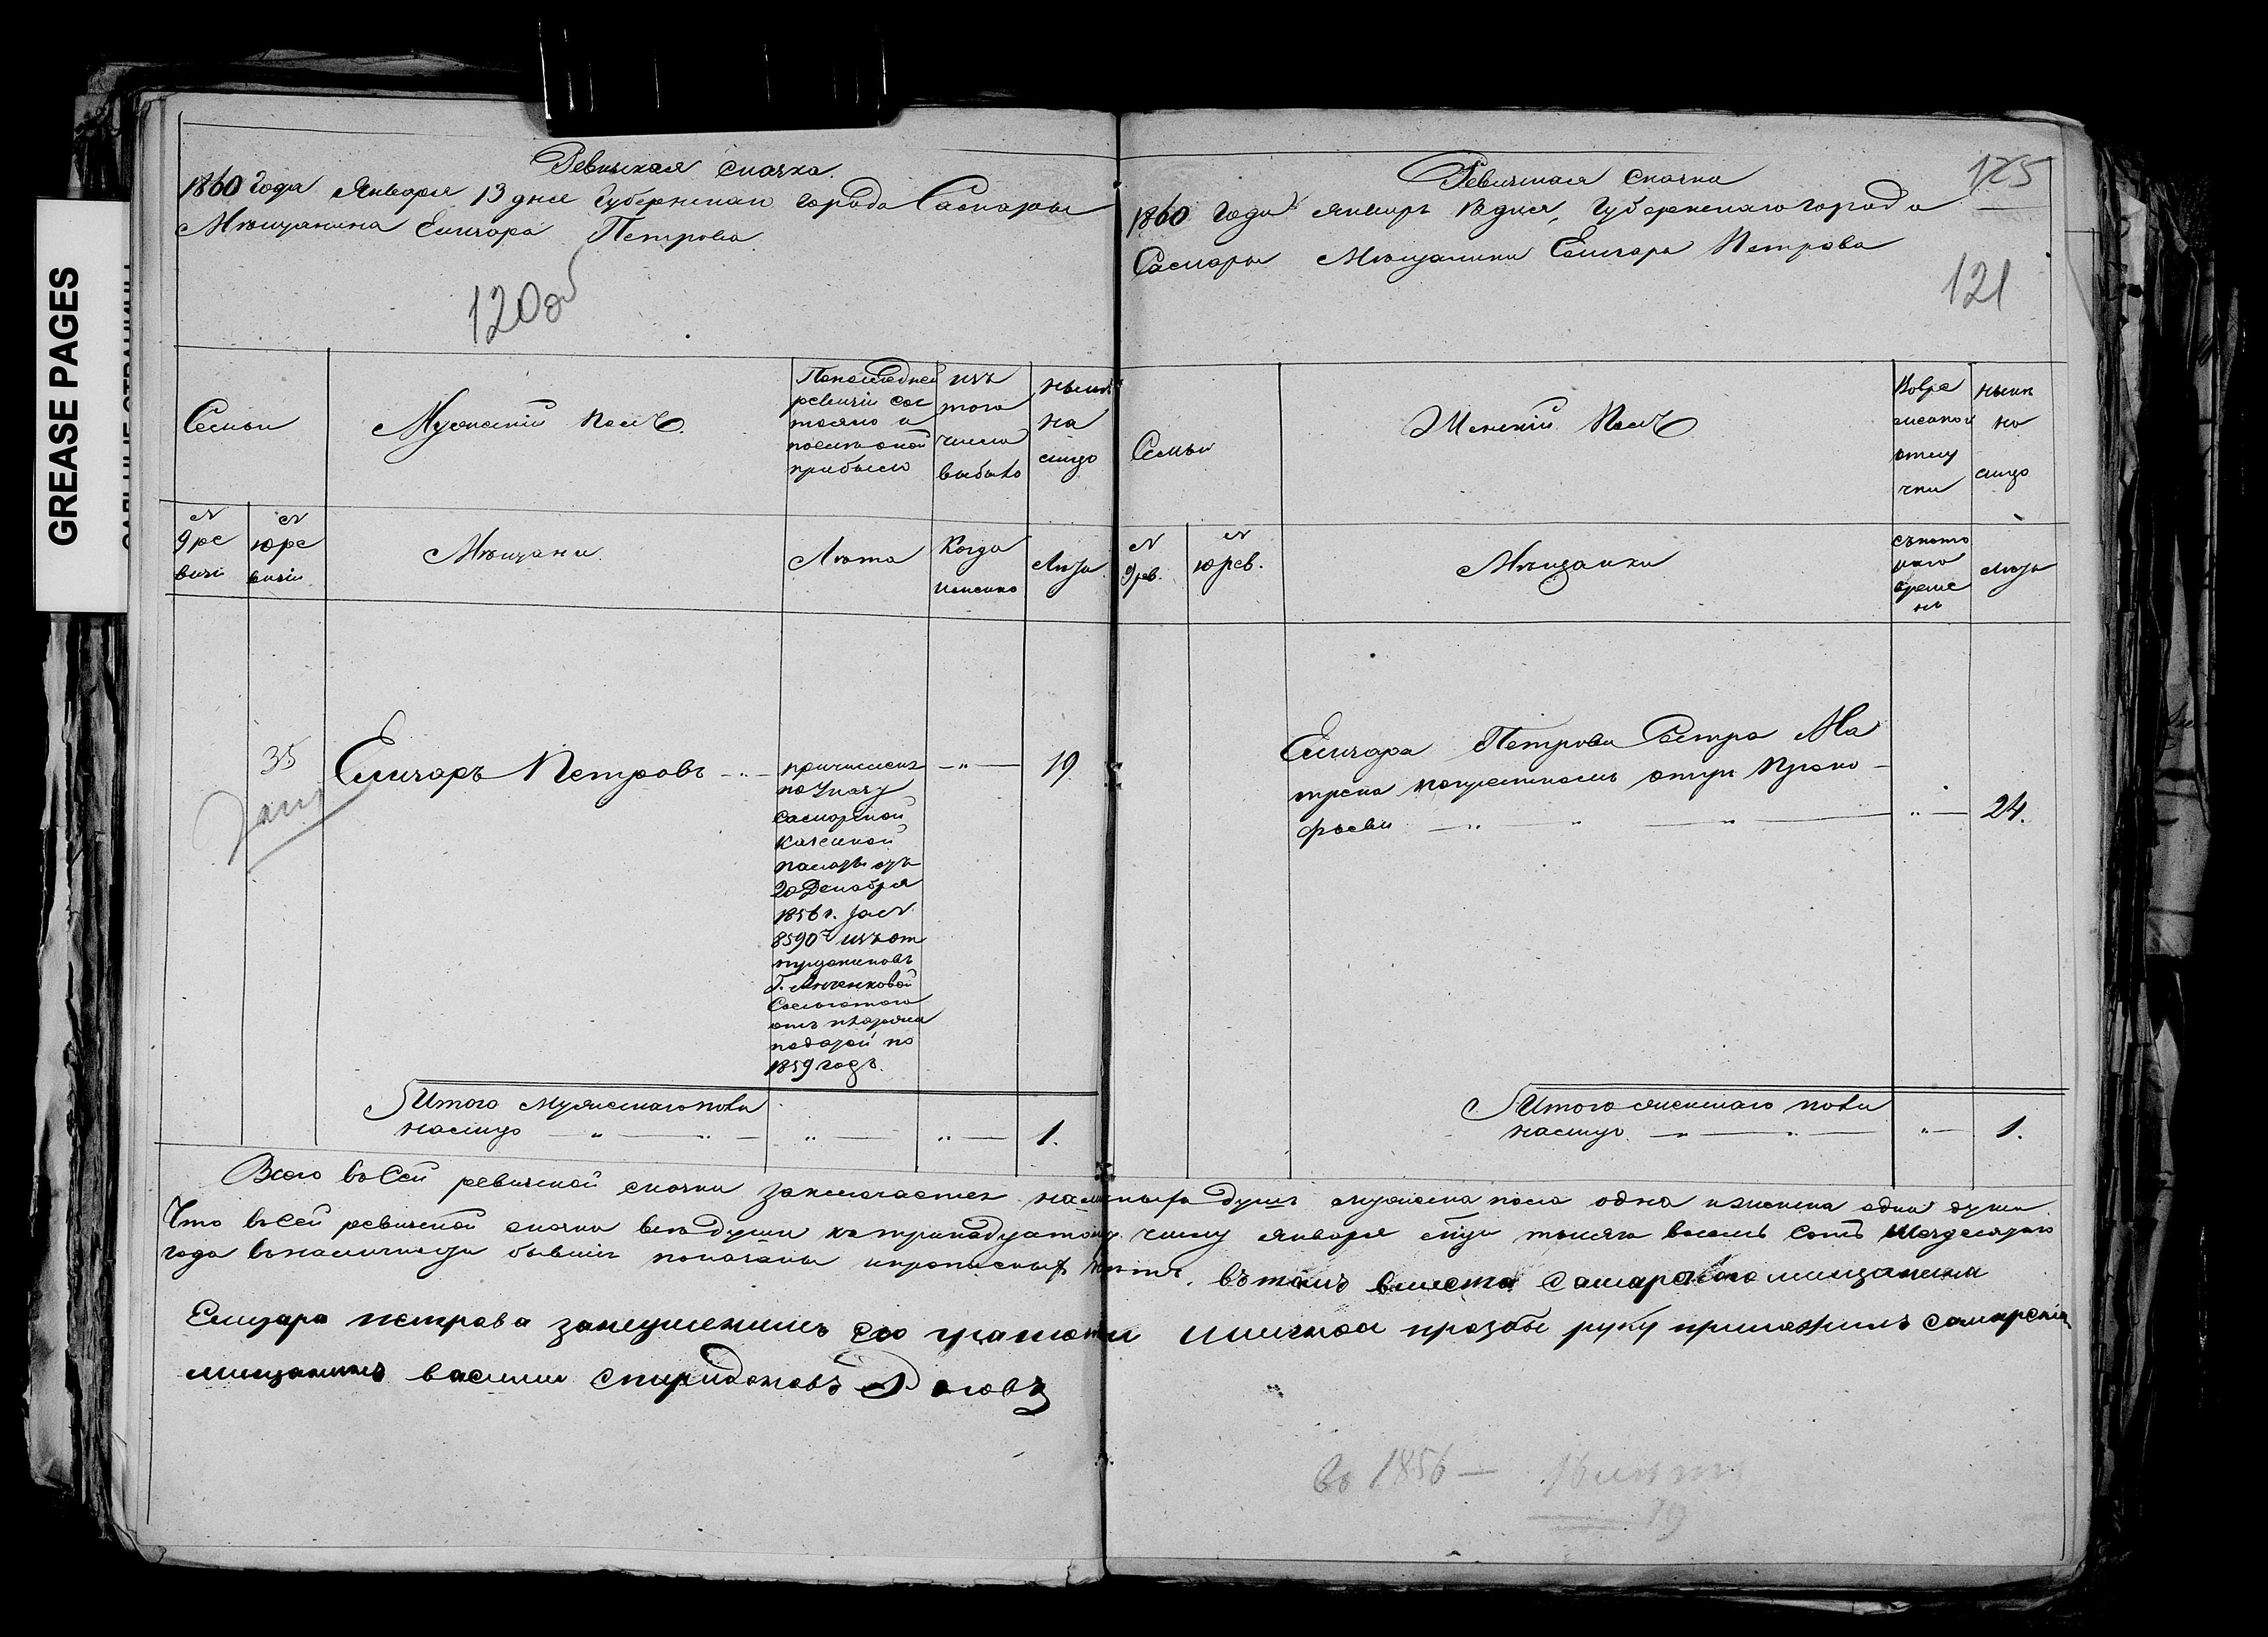 GREASE PAGES
Ревизская сказка.
1860 года Января 13 дня Губернскаго города Самары
Мѣщанина Елизара Петрова
120 об
Семьи
Мужеский Полъ.
По последней ревизии состояло и после оной прибыло
изъ того числа выбыло
ныне на лицо
№ 9 ревизии
№ 10 ревизии
Мѣщане.
Лѣта
Когда именно
Лѣта
35
Елизаръ Петровъ
19
причисленъ
по Указу
Самарской
казенной
палаты отъ
20 Декабря
1856 г. за №
8590 изъ от
пущенниковъ
Г.
1859 годъ.
Итого мужескаго пола
на лицо
1.
Ревизская сказка
125
1860 года Январь 13 дня, Губернскаго города
Самары Мѣщанина Елизара Петрова
121
Семьи
Женский Полъ
Во временной отлучки
ныне на лицо
№ 9 рев.
№ 10 рев.
Мѣщанки
съ котораго времени
лѣта
Елизара Петрова Сестра Ма
трена по крестномъ отцу Проко-
фьева
24.
Итого женскаго пола
на лицо
1.
Всего въ Сей ревизской сказки заключается наличныхъ душъ мужеска пола одна и женска одна душа.
Что въ сей ревизской сказки все души къ тринадцатому числу Января тысяча восемь сотъ Шездесятаго
года въ наличности бывшие показаны и прописныхъ нетъ. въ томъ вместо самарскаго мищанина
Елизара петрова за неуменииемъ его грамоти и личной прозбы руку приложилъ самарский
мищанинъ василий спиридоновъ
во 1856 — 16 летъ
19